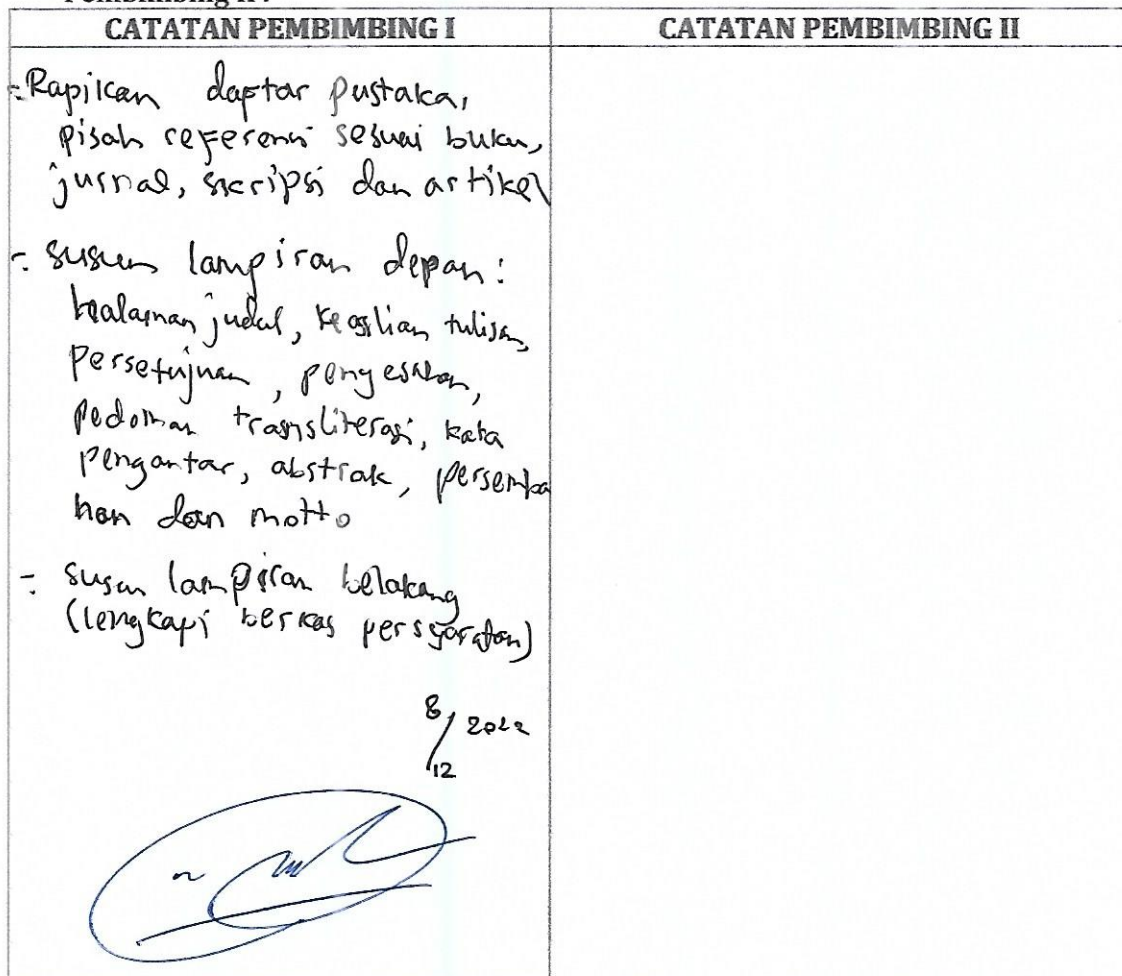 CATATAN PEMBIMBING I
CATATAN PEMBIMBING II
- Rapikan daftar pustaka,
pisah referensi sesuai buku,
jurnal, skripsi dan artikel
- susun lampiran depan:
halaman judul, keaslian tulisan,
persetujuan, pengesahan,
pedoman transliterasi, kata
pengantar, abstrak, persemba
han dan motto
- susun lampiran belakang
(lengkapi berkas persyaratan)
8/12 2022